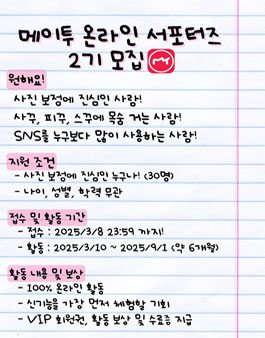 메이투 온라인 서포터즈
2기 모집
원해요!
사진 보정에 진심인 사람!
사꾸, 피꾸, 스꾸에 목숨 거는 사람!
SNS를 누구보다 많이 사용하는 사람!
지원 조건
- 사진 보정에 진심인 누구나! (30명)
- 나이, 성별, 학력 무관
접수 및 활동 기간
- 접수 : 2025/3/8 23:59 까지!
- 활동 : 2025/3/10 ~ 2025/9/1 (약 6개월)
활동 내용 및 보상
- 100% 온라인 활동
- 신기능을 가장 먼저 체험할 기회
- VIP 회원권, 활동 보상 및 수료증 지급